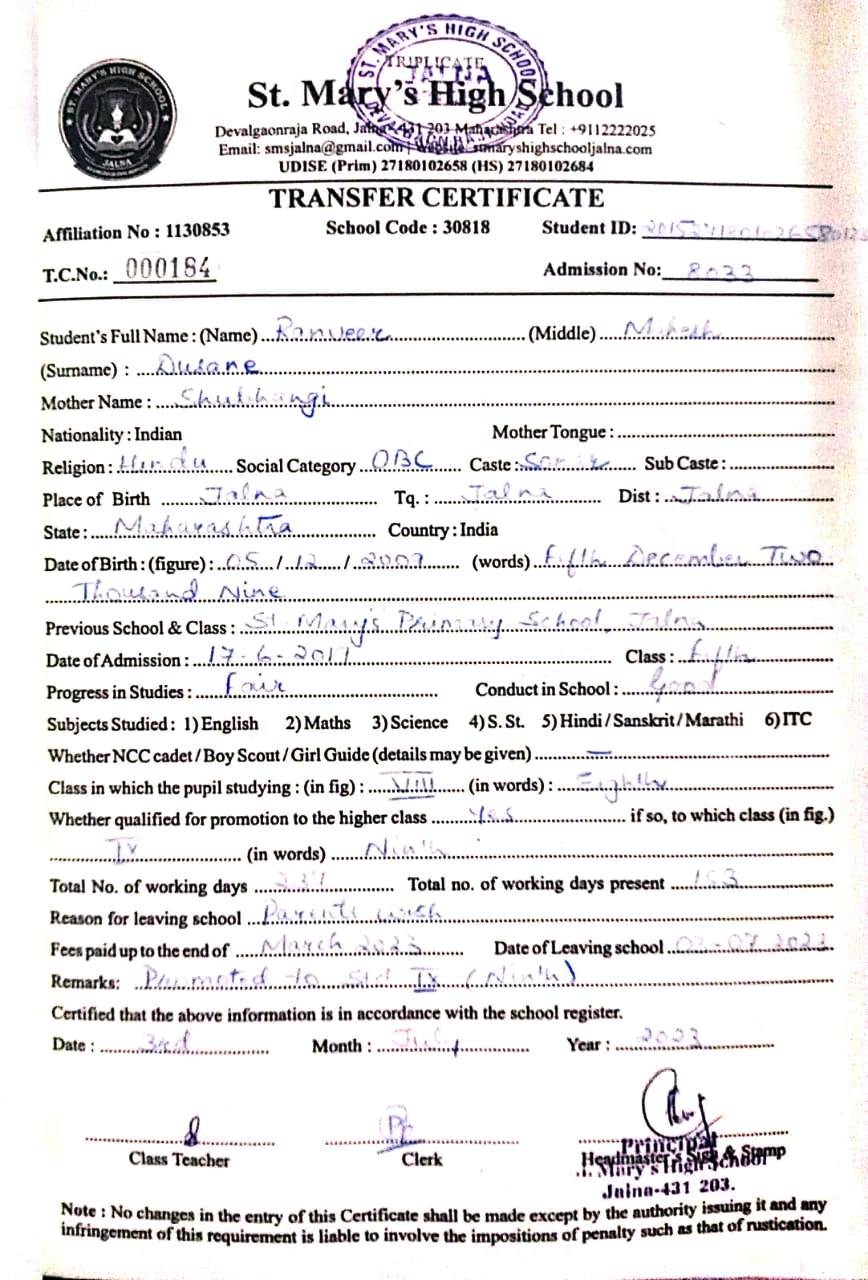 ST. MARY'S HIGH SCHOOL
JALNA
TRIPLICATE
St. Mary's High School
Devalgaonraja Road, Jalna-431 203 Maharashtra Tel : +9112222025
Email: smsjalna@gmail.com | Website: stmaryshighschooljalna.com
UDISE (Prim) 27180102658 (HS) 27180102684
TRANSFER CERTIFICATE
Affiliation No : 1130853 School Code : 30818 Student ID:
T.C.No.: 000184 Admission No: 8033
Student's Full Name : (Name) Ranveer (Middle) Mahesh
(Surname) : Dusane
Mother Name : Shubhangi
Nationality : Indian Mother Tongue :
Religion : Hindu Social Category OBC Caste : Sonar Sub Caste :
Place of Birth Jalna Tq. : Jalna Dist : Jalna
State : Maharashtra Country : India
Date of Birth : (figure) : 05 / 12 / 2009 (words) Fifth December Two
Thousand Nine
Previous School & Class : St. Mary's Primary School, Jalna
Date of Admission : 17-6-2019 Class : Fifth
Progress in Studies : Fair Conduct in School : Good
Subjects Studied : 1) English 2) Maths 3) Science 4) S. St. 5) Hindi / Sanskrit / Marathi 6) ITC
Whether NCC cadet / Boy Scout / Girl Guide (details may be given) —
Class in which the pupil studying : (in fig) : VIII (in words) : Eighth
Whether qualified for promotion to the higher class Yes if so, to which class (in fig.)
IX (in words) Ninth
Total No. of working days Total no. of working days present
Reason for leaving school Parents wish
Fees paid up to the end of March 2023 Date of Leaving school 03-07-2023
Remarks: Promoted to Std IX (Ninth)
Certified that the above information is in accordance with the school register.
Date : 3rd Month : July Year : 2023
Class Teacher Clerk Headmaster's Sign & Stamp
Principal
St. Mary's High School
Jalna-431 203.
Note : No changes in the entry of this Certificate shall be made except by the authority issuing it and any
infringement of this requirement is liable to involve the impositions of penalty such as that of rustication.